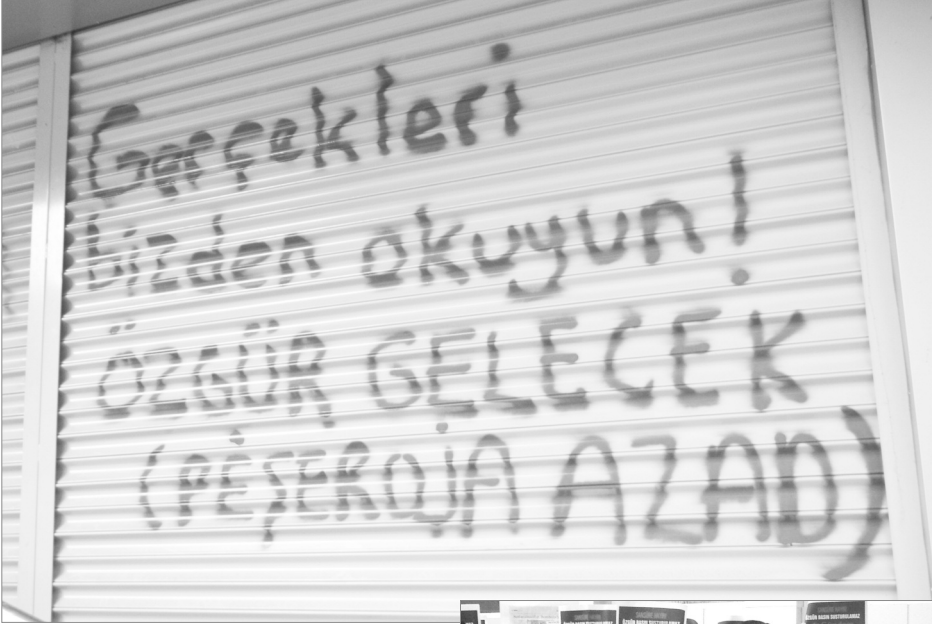 Gerçekleri
bizden okuyun!
ÖZGÜR GELECEK
(PÊŞEROJA AZAD)